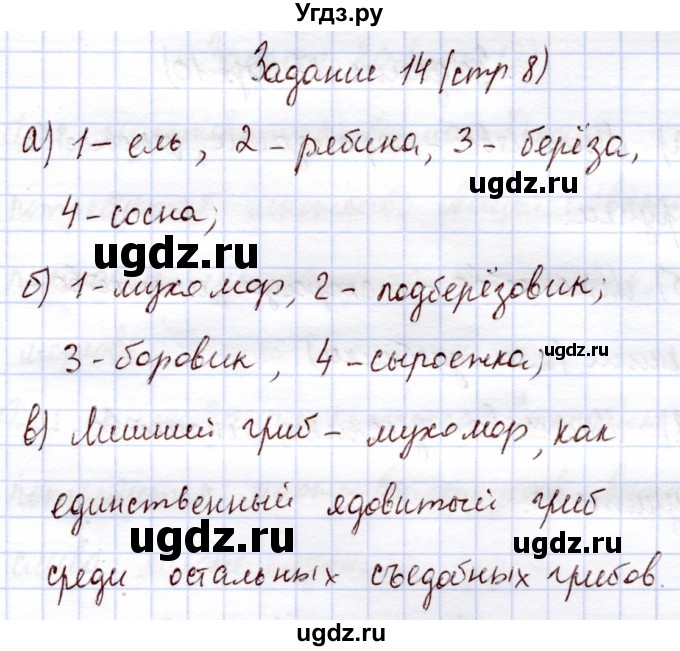 Угдз.ру
Задание 14 (стр 8)
а) 1 - ель, 2 - рябина, 3 - берёза,
ugdz.ru
4 - сосна;
ugdz.ru
б) 1 - мухомор, 2 - подберёзовик;
3 - боровик, 4 - сыроежка;
ugdz.ru
в) Лишний гриб - мухомор, как
единственный ядовитый гриб
ugdz.ru
ugdz.ru
среди остальных съедобных грибов.
ugdz.ru